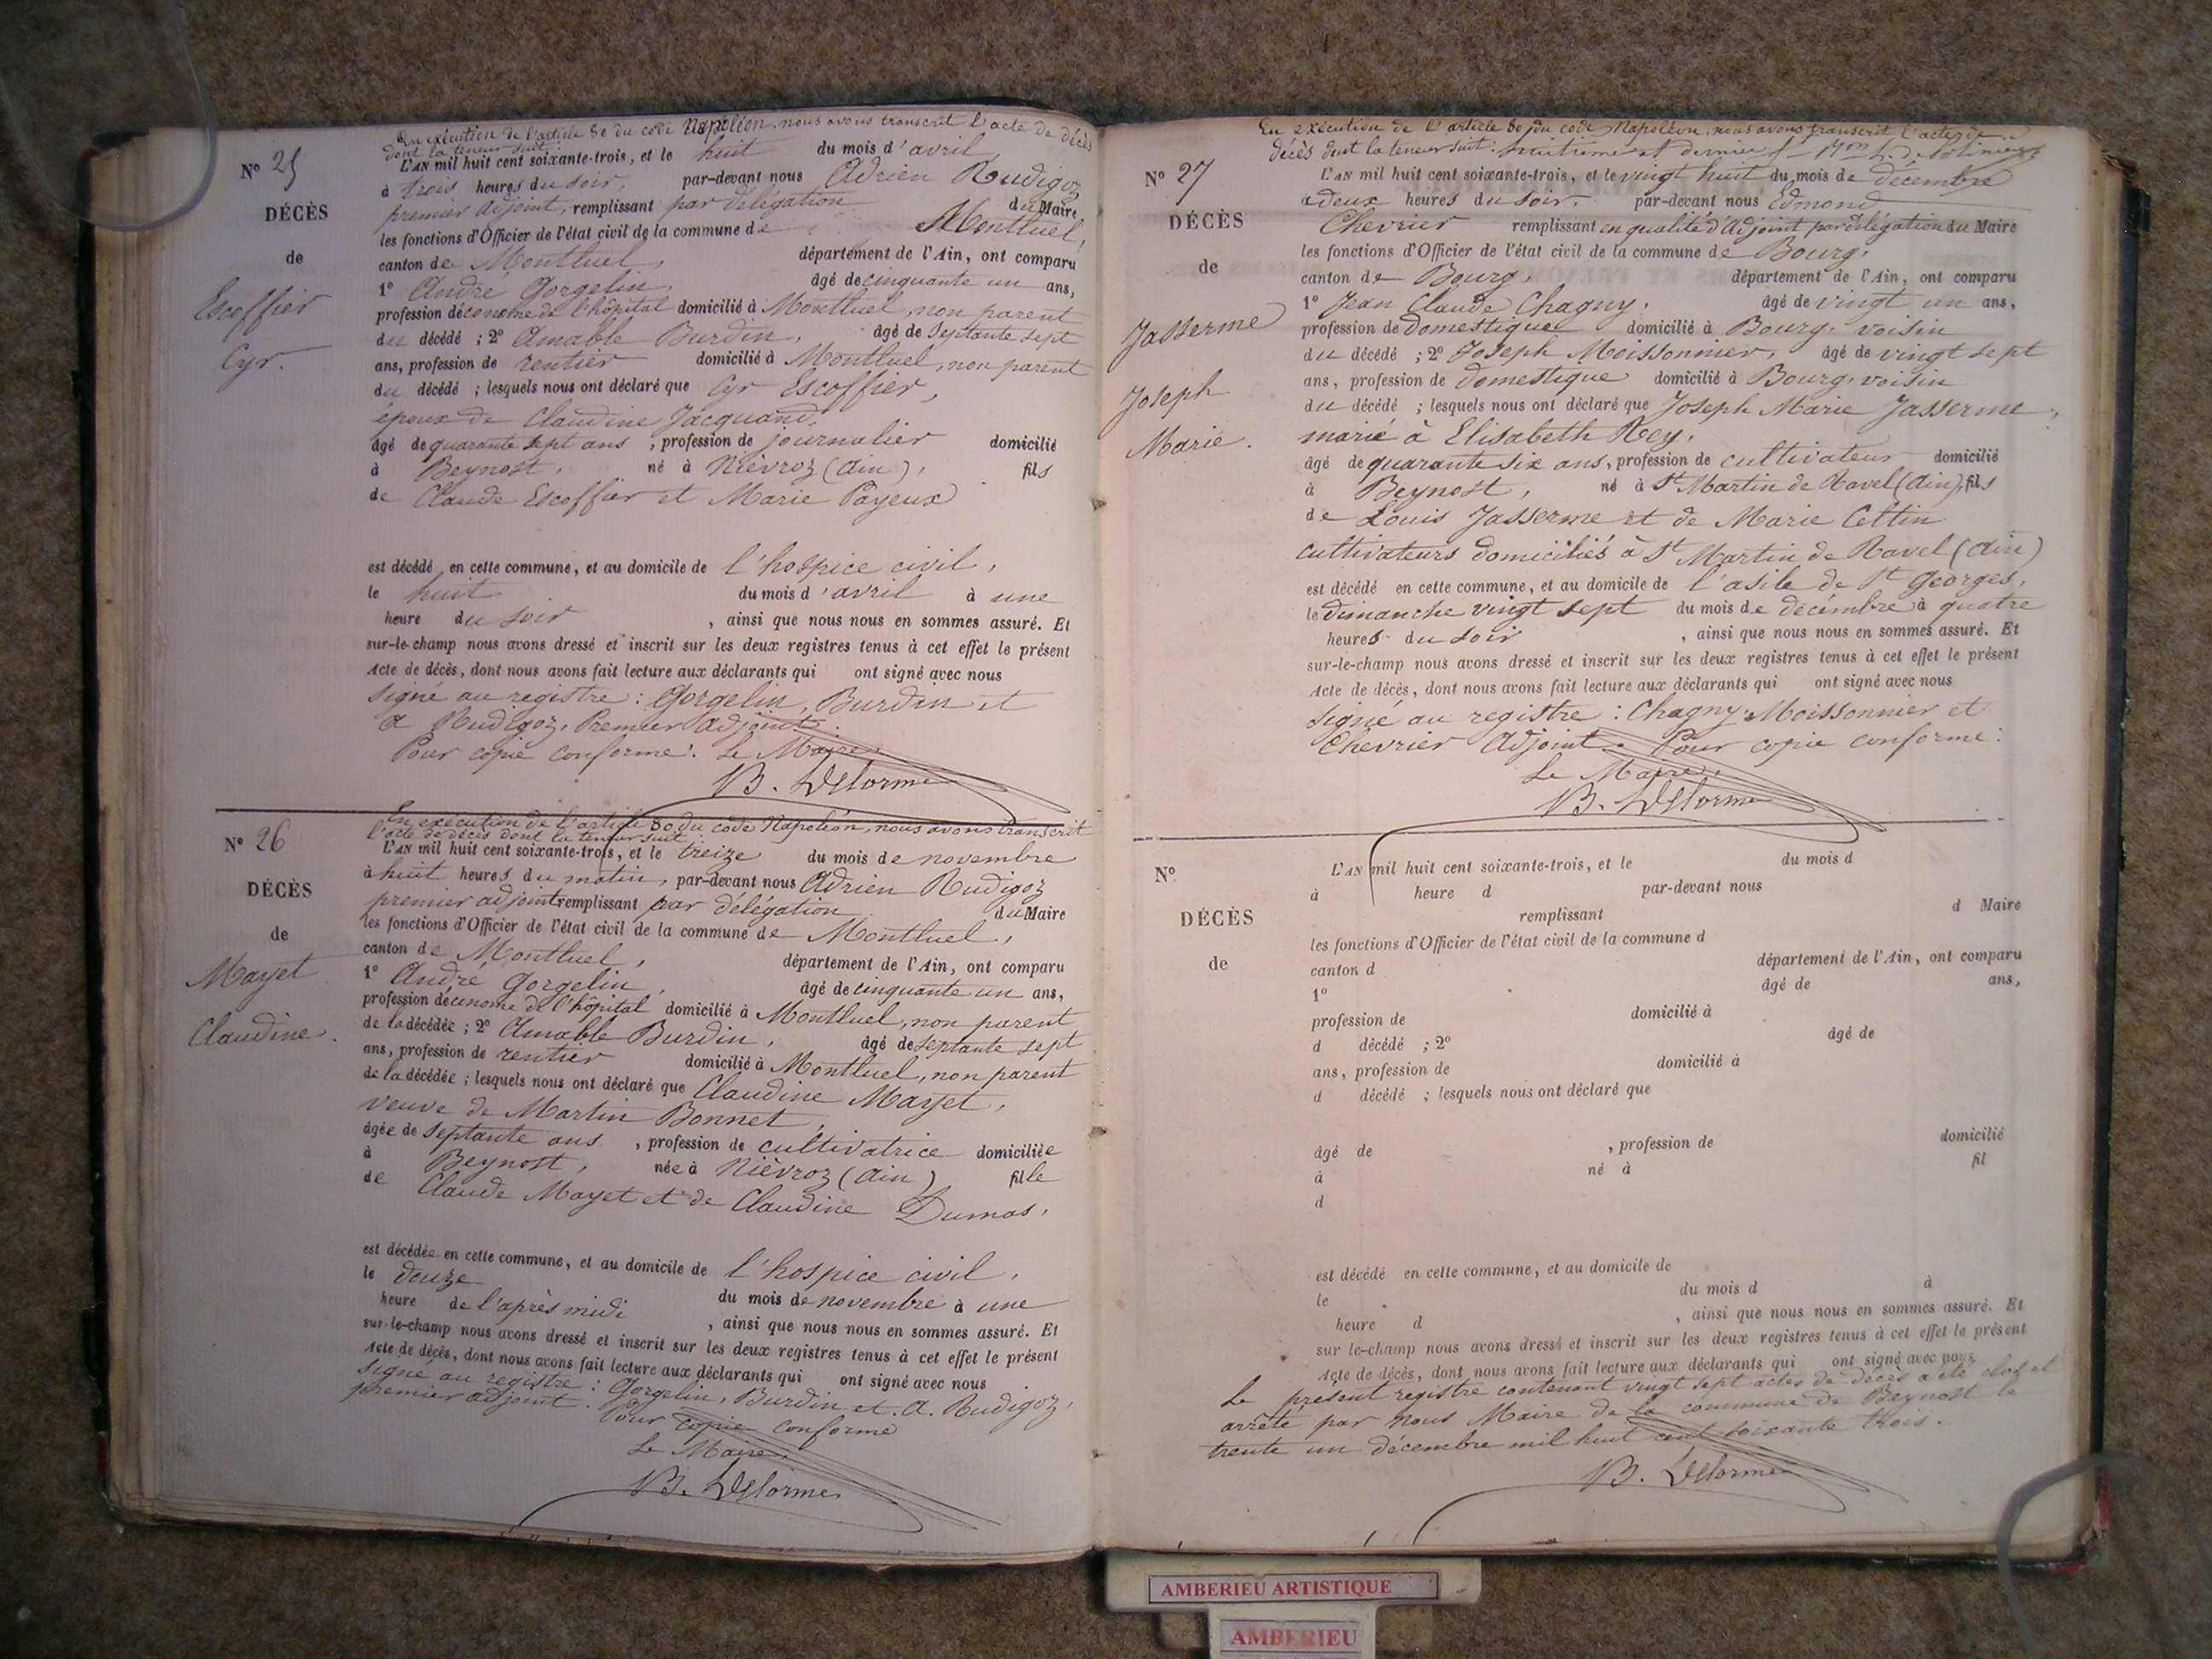 En exécution de l'article 80 du code Napoléon, nous avons transcrit l'acte de décès
dont la teneur suit :
N° 25
L'AN mil huit cent soixante-trois, et le huit du mois d'avril
à trois heures du soir, par-devant nous Adrien Rudigoz
premier adjoint, remplissant par délégation du Maire
DÉCÈS
les fonctions d'Officier de l'état civil de la commune de Montluel,
de
canton de Montluel, département de l'Ain, ont comparu
1° André Gorgelin, âgé de cinquante un ans,
Escoffier
profession d'économe de l'hôpital domicilié à Montluel, non parent
du décédé ; 2° Amable Burdin, âgé de septante sept
Cyr.
ans, profession de rentier domicilié à Montluel, non parent
du décédé ; lesquels nous ont déclaré que Cyr Escoffier,
époux de Claudine Jacquand,
âgé de quarante sept ans, profession de journalier domicilié
à Beynost, né à Nièvroz (Ain), fils
de Claude Escoffier et Marie Payeux
est décédé en cette commune, et au domicile de l'hospice civil,
le huit du mois d'avril à une
heure du soir, ainsi que nous nous en sommes assuré. Et
sur-le-champ nous avons dressé et inscrit sur les deux registres tenus à cet effet le présent
Acte de décès, dont nous avons fait lecture aux déclarants qui ont signé avec nous
signé au registre : Gorgelin, Burdin et
A Rudigoz, Premier adjoint.
Pour copie conforme : Le Maire,
B. Delorme
En exécution de l'article 80 du code Napoléon, nous avons transcrit
l'acte de décès dont la teneur suit
N° 26
L'AN mil huit cent soixante-trois, et le treize du mois de novembre
à huit heures du matin, par-devant nous Adrien Rudigoz
DÉCÈS
premier adjoint remplissant par délégation du Maire
les fonctions d'Officier de l'état civil de la commune de Montluel,
de
canton de Montluel, département de l'Ain, ont comparu
Mayet
1° André Gorgelin, âgé de cinquante un ans,
profession d'économe de l'hôpital domicilié à Montluel, non parent
Claudine.
de la décédée ; 2° Amable Burdin, âgé de septante sept
ans, profession de rentier domicilié à Montluel, non parent
de la décédée ; lesquels nous ont déclaré que Claudine Mayet,
veuve de Martin Bonnet,
âgée de septante ans, profession de cultivatrice domiciliée
à Beynost, née à Nièvroz (Ain) fille
de Claude Mayet et de Claudine Dumas,
est décédée en cette commune, et au domicile de l'hospice civil,
le douze du mois de novembre à une
heure de l'après midi, ainsi que nous nous en sommes assuré. Et
sur-le-champ nous avons dressé et inscrit sur les deux registres tenus à cet effet le présent
Acte de décès, dont nous avons fait lecture aux déclarants qui ont signé avec nous
signé au registre : Gorgelin, Burdin et A. Rudigoz,
premier adjoint.
Pour copie conforme
Le Maire,
B. Delorme
En exécution de l'article 80 du code Napoléon, nous avons transcrit l'acte de
décès dont la teneur suit : et dernier
N° 27
L'AN mil huit cent soixante-trois, et le vingt huit du mois de décembre
à deux heures du soir, par-devant nous Edmond
DÉCÈS
Chevrier remplissant en qualité d'Adjoint par délégation du Maire
les fonctions d'Officier de l'état civil de la commune de Bourg,
de
canton de Bourg, département de l'Ain, ont comparu
1° Jean Claude Chagny, âgé de vingt un ans,
Jasserme
profession de domestique domicilié à Bourg, voisin
du décédé ; 2° Joseph Moissonnier, âgé de vingt sept
Joseph
ans, profession de domestique domicilié à Bourg, voisin
du décédé ; lesquels nous ont déclaré que Joseph Marie Jasserme,
Marie.
marié à Elisabeth Rey,
âgé de quarante six ans, profession de cultivateur domicilié
à Beynost, né à St Martin de Bavel (Ain), fils
de Louis Jasserme et de Marie Cettin
cultivateurs domiciliés à St Martin de Bavel (Ain)
est décédé en cette commune, et au domicile de l'asile de St Georges,
le dimanche vingt sept du mois de décembre à quatre
heures du soir, ainsi que nous nous en sommes assuré. Et
sur-le-champ nous avons dressé et inscrit sur les deux registres tenus à cet effet le présent
Acte de décès, dont nous avons fait lecture aux déclarants qui ont signé avec nous
signé au registre : Chagny, Moissonnier et
Chevrier Adjoint. Pour copie conforme :
Le Maire,
B. Delorme
N°
L'AN mil huit cent soixante-trois, et le du mois d
à heure d par-devant nous
DÉCÈS
remplissant d Maire
les fonctions d'Officier de l'état civil de la commune d
de
canton d département de l'Ain, ont comparu
1° âgé de ans,
profession de domicilié à
d décédé ; 2° âgé de
ans, profession de domicilié à
d décédé ; lesquels nous ont déclaré que
âgé de , profession de domicilié
à né à fil
d
est décédé en cette commune, et au domicile de
le du mois d à
heure d , ainsi que nous nous en sommes assuré. Et
sur le-champ nous avons dressé et inscrit sur les deux registres tenus à cet effet le présent
Acte de décès, dont nous avons fait lecture aux déclarants qui ont signé avec nous
Le présent registre contenant vingt sept actes de décès a été clos et
arrêté par nous Maire de la commune de Beynost le
trente un décembre mil huit cent soixante trois.
B. Delorme
AMBERIEU ARTISTIQUE
AMBERIEU